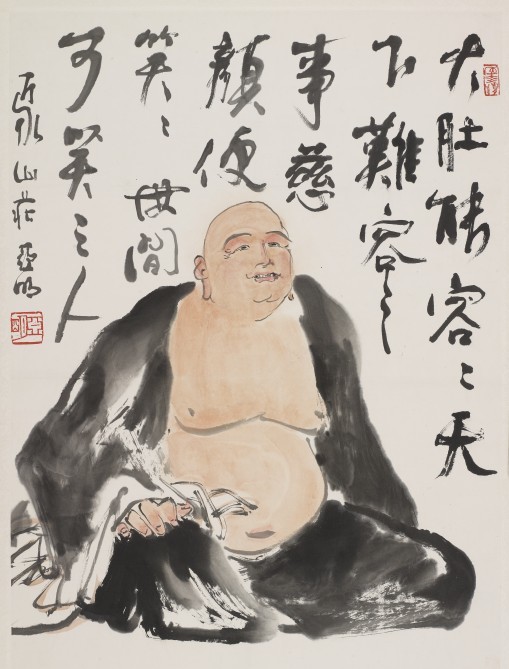 大肚能容〻天
下難容之
事慈
顏便
笑〻世間
可笑之人
近水山莊 亞明
亞明